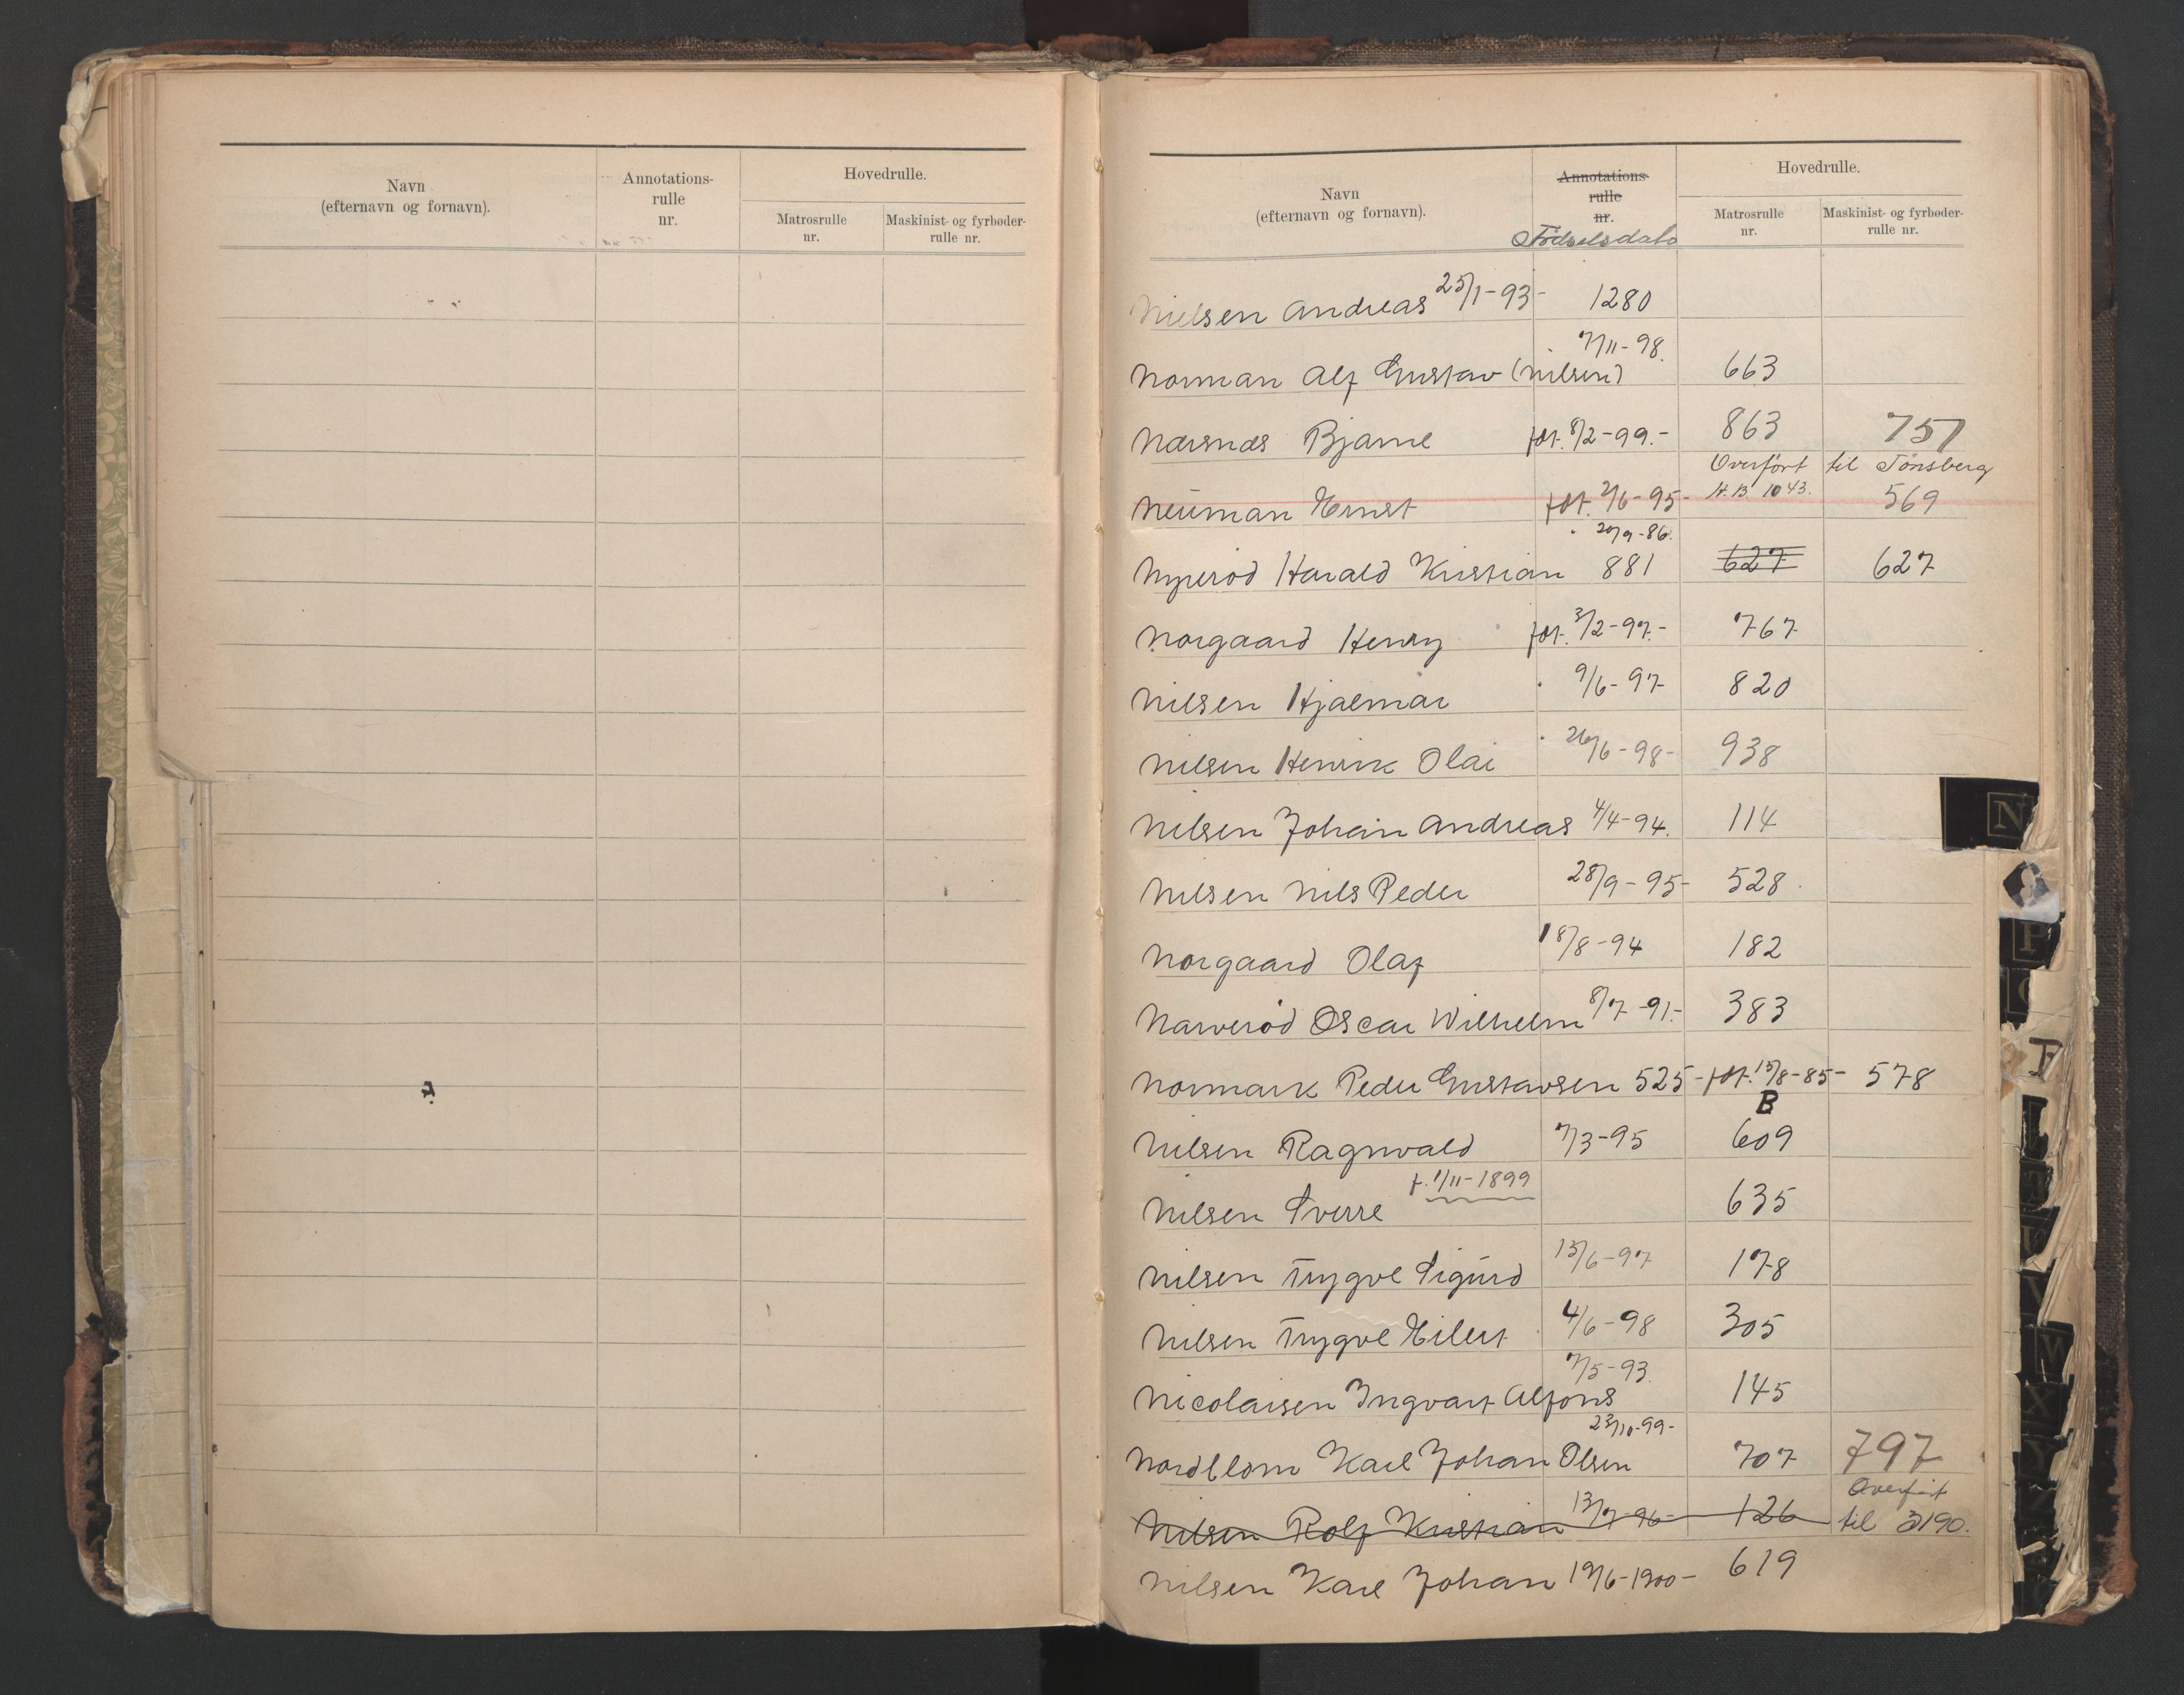 Navn
(efternavn og fornavn).
Annotations-
rulle
nr.
Hovedrulle.
Matrosrulle
nr.
Maskinist- og fyrbøder-
rulle nr.
Navn
(efternavn og fornavn).
Annotations-
rulle
nr.
Födselsdato
Hovedrulle.
Matrosrulle
nr.
Maskinist- og fyrbøder-
rulle nr.
Nielsen Andreas 25/1-93- 1280
7/11-98.
Norman Alf Gustav (Nilsen) 663
Nærsnæs Bjarne föt. 8/2-99.- 863 757
Overfört til Tönsberg
Neuman Ernst föt. 2/6-95- H.B. 1043. 569
20/9-86.
Nyrerød Harald Kristian 881 627 627
Norgaard Henry föt. 3/2-97.- 767
Nilsen Hjalmar 9/6-97- 820
Nilsen Henrik Olai 26/6-98- 938
Nilsen Johan Andreas 4/4-94. 114
Nilsen Nils Peder 28/9-95- 528
Norgaard Olaf 18/8-94 182
Narverød Oscar Wilhelm 8/7-91.- 383
Normark Peder Gustavsen 525- föt. 15/8-85- 578
B
Nilsen Ragnvald 7/3-95 609
f. 1/11-1899
Nilsen Sverre 635
Nilsen Trygve Sigurd 15/6-97 178
Nilsen Trygve Eilert 4/6-98 305
7/5-93.
Nicolaisen Ingvart Alfons 145
23/10-99-
Nordblom Karl Johan Olsen 707 797
Overfört
Nilsen Rolf Kristian 13/7-96- 126 til 3190.
Nilsen Karl Johan 19/6-1900- 619
N
P